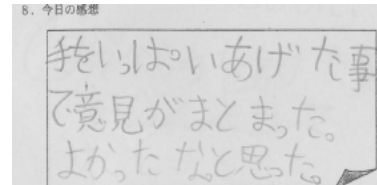 8. 今日の感想
手をいっぱいあげた事
で意見がまとまった。
よかったなと思った。